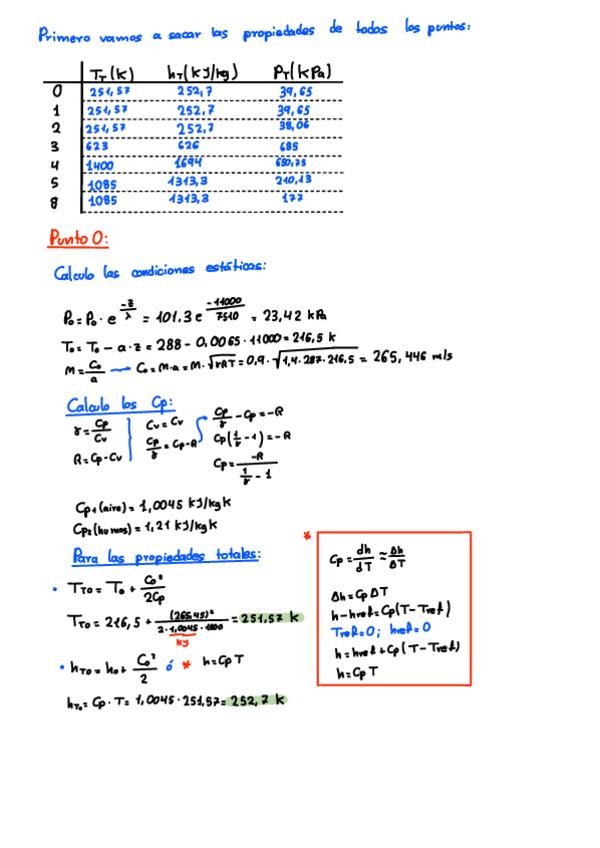 Primero vamos a sacar las propiedades de todos los puntos:
T_T(K) h_T(KJ/kg) P_T(KPa)
0 251,57 252,7 39,65
1 251,57 252,7 39,65
2 251,57 252,7 38,06
3 623 626 685
4 1400 1694 650,75
5 1085 1313,3 210,13
8 1085 1313,3 177
Punto 0:
Calculo las condiciones estáticas:
P₀=P₀·e^(-z/λ) = 101.3e^(-11000/7510) = 23,42 kPa
T₀=T₀-a·z=288-0,0065·11000=216,5 k
M=C₀/a → C₀=M·a=M·√γRT=0,9·√1,4·287·216,5 = 265,446 m/s
Calculo los Cp:
γ=Cp/Cv
R=Cp-Cv
Cv=Cv
Cp/γ=Cp-R
Cp/γ-Cp=-R
Cp(1/γ-1)=-R
Cp=-R/(1/γ-1)
Cp₁(aire)=1,0045 KJ/kgk
Cp₂(humos)=1,21 KJ/kgK
Para las propiedades totales:
• T_T0=T₀+C₀²/2Cp
T_T0=216,5+(265,45)²/2·1,0045·1000=251,57 k
kg
• h_T0=h₀+C₀²/2 ó * h=CpT
h_T0=Cp·T=1,0045·251,57=252,7 k
*
Cp=dh/dT≈Δh/ΔT
Δh=CpΔT
h-href=Cp(T-Tref)
Tref=0; href=0
h=href+Cp(T-Tref)
h=CpT